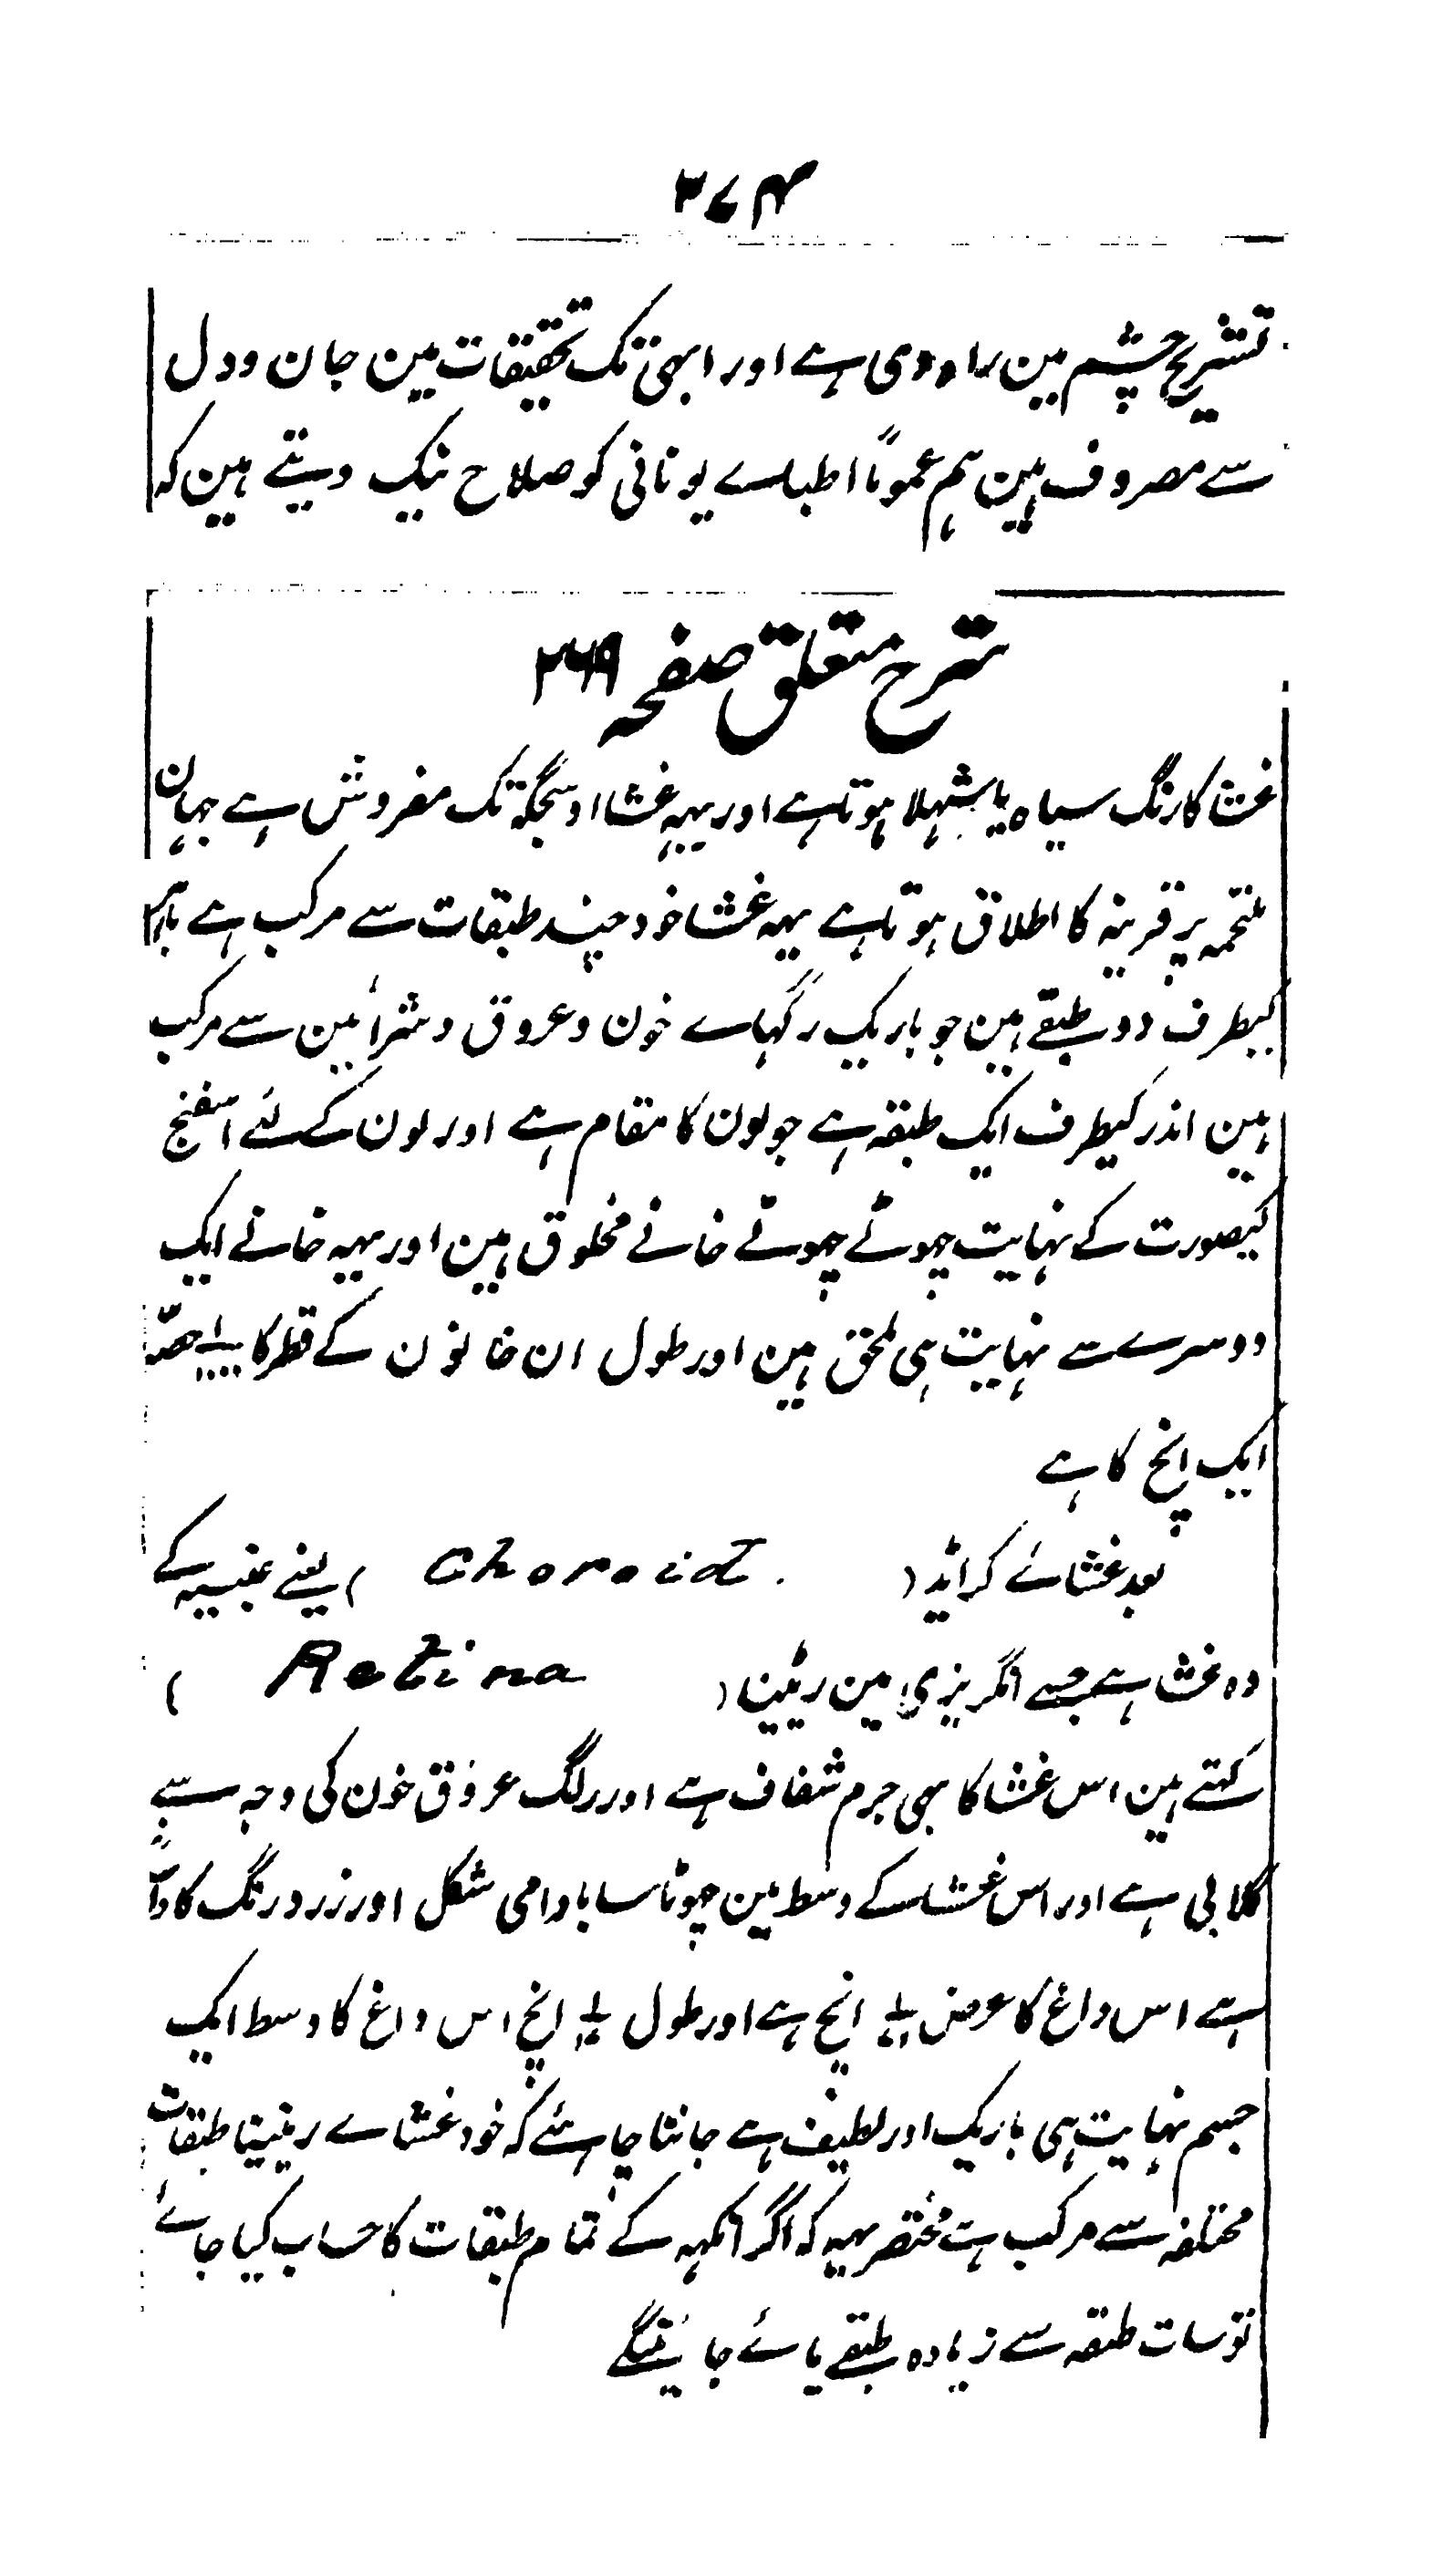 ۲۷۴
تشریح چشم مین راہ دی ہے اور ابہی تک تحقیقات مین جان و دل
سے مصروف ہین ہم عموماً اطباے یونانی کو صلاح نیک دیتے ہین کہ
شرح متعلق صفحہ ۲۶۹
غشا کا رنگ سیاہ یا شہلا ہوتا ہے اور یہہ غشا اوسجگہ تک مفروش ہے جہان
ملتحمہ پر قرنیہ کا اطلاق ہوتا ہے یہہ غشا خود چند طبقات سے مرکب ہے باہر
کیطرف دو طبقے ہین جو باریک رگہاے خون و عروق و شرائین سے مرکب
ہین اندر کیطرف ایک طبقہ ہے جو لون کا مقام ہے اور لون کے لئے اسفنج
کیصورت کے نہایت چہوٹے چہوٹے خانے مخلوق ہین اور یہہ خانے ایک
دوسرے سے نہایت ہی ملحق ہین اور طول ان خانون کے قطر کا حصّہ
ایک انچ کا ہے
بعد غشائے کرائڈ ( Choroid ) یعنے عنبیہ کے
وہ غشا ہے جسے انگریزی مین رٹینا ( Retina )
کہتے ہین اس غشا کا بہی جرم شفاف ہے اور رنگ عروق خون کی وجہ سے
گلابی ہے اور اس غشا کے وسط مین چہوٹا سا بادامی شکل اور زرد رنگ کا داغ
ہے اس داغ کا عرض انچ ہے اور طول انچ اس داغ کا وسط ایک
جسم نہایت ہی باریک اور لطیف ہے جاننا چاہئے کہ خود غشاے ریٹینا طبقات
مختلفہ سے مرکب ہے مختصر یہہ کہ اگر آنکہہ کے تمام طبقات کا حساب کیا جائے
تو سات طبقہ سے زیادہ طبقے پائے جائینگے